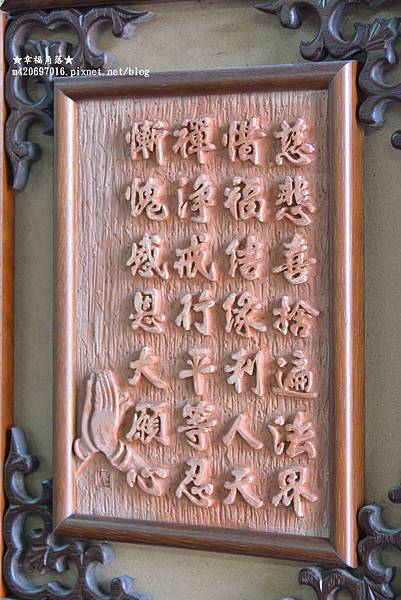 ★幸福角落★
m420697016.pixnet.net/blog
慈悲喜捨遍法界
惜福結緣利人天
禪淨戒行平等忍
慚愧感恩大願心